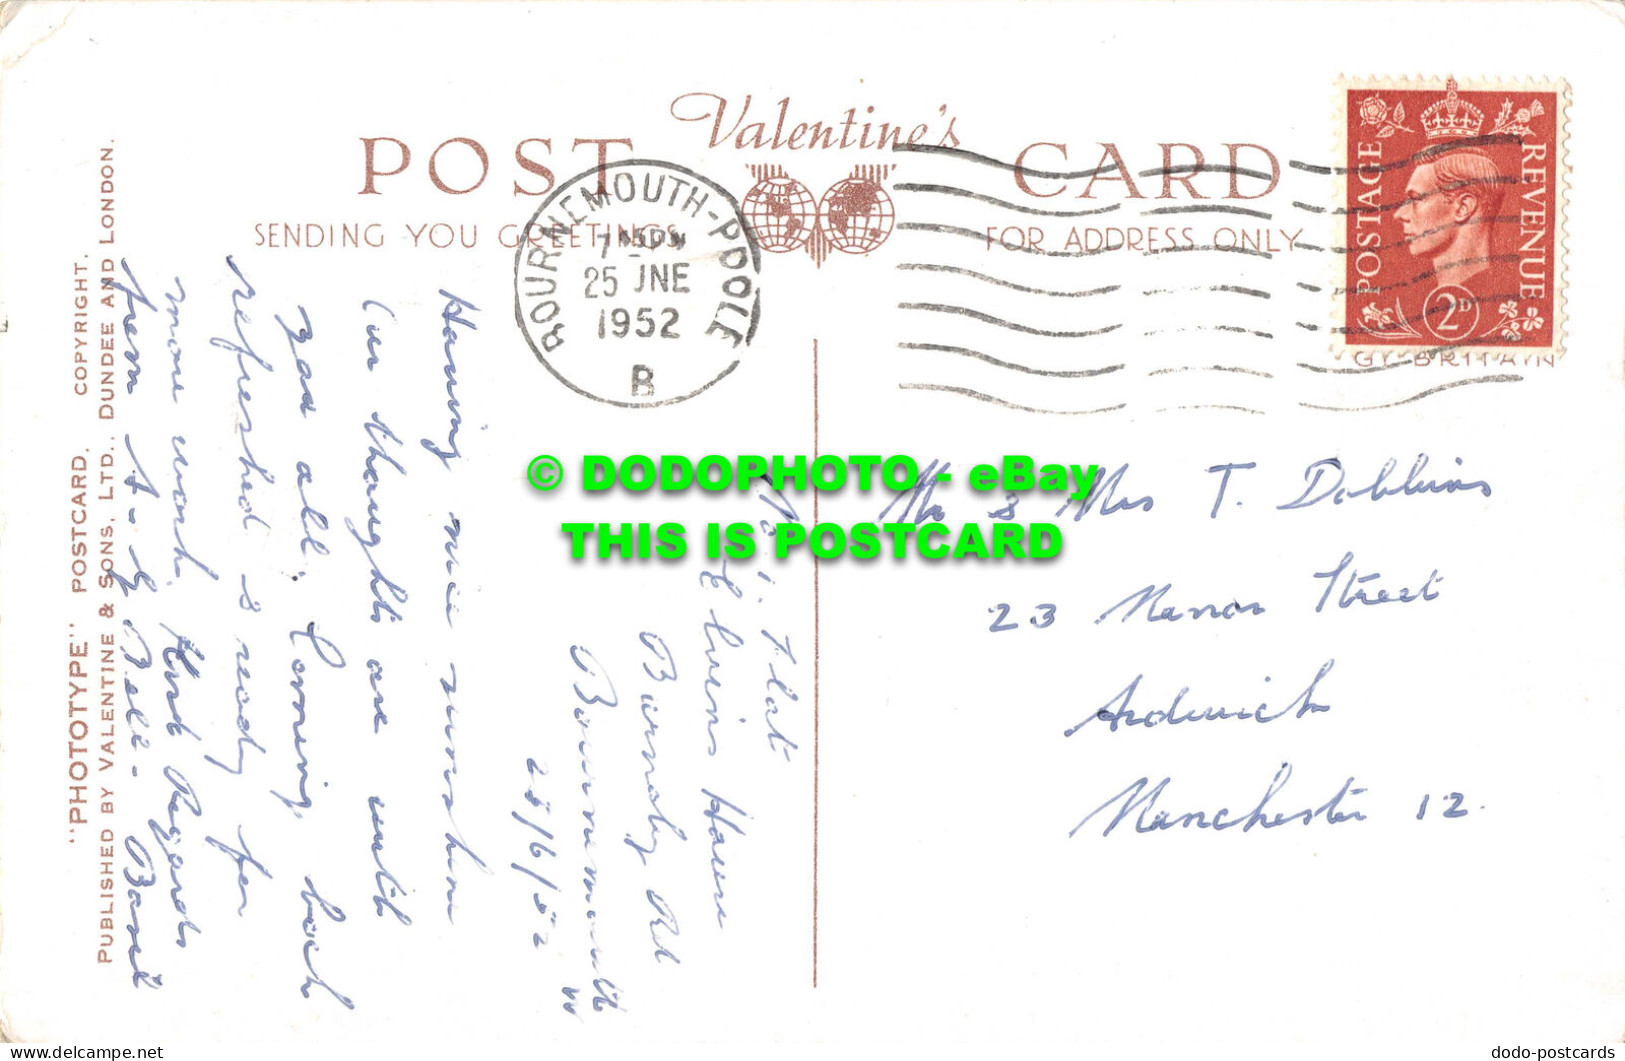 Valentine's
POST CARD
SENDING YOU GREETINGS
FOR ADDRESS ONLY
BOURNEMOUTH-POOLE
25 JNE
1952
B
POSTAGE
REVENUE
2D
"PHOTOTYPE" POSTCARD. COPYRIGHT.
PUBLISHED BY VALENTINE & SONS, LTD., DUNDEE AND LONDON.
© DODOPHOTO - eBay
THIS IS POSTCARD
No 1. Flat
House
Burnaby Rd
Bournemouth W
25/6/52
Having nice sunshine
Our thoughts are with
you all. Coming back
refreshed & ready for
more work. Kind Regards
from
Mr & Mrs T. Dobbins
23 Manor Street
Ardwick
Manchester 12.
dodo-postcards